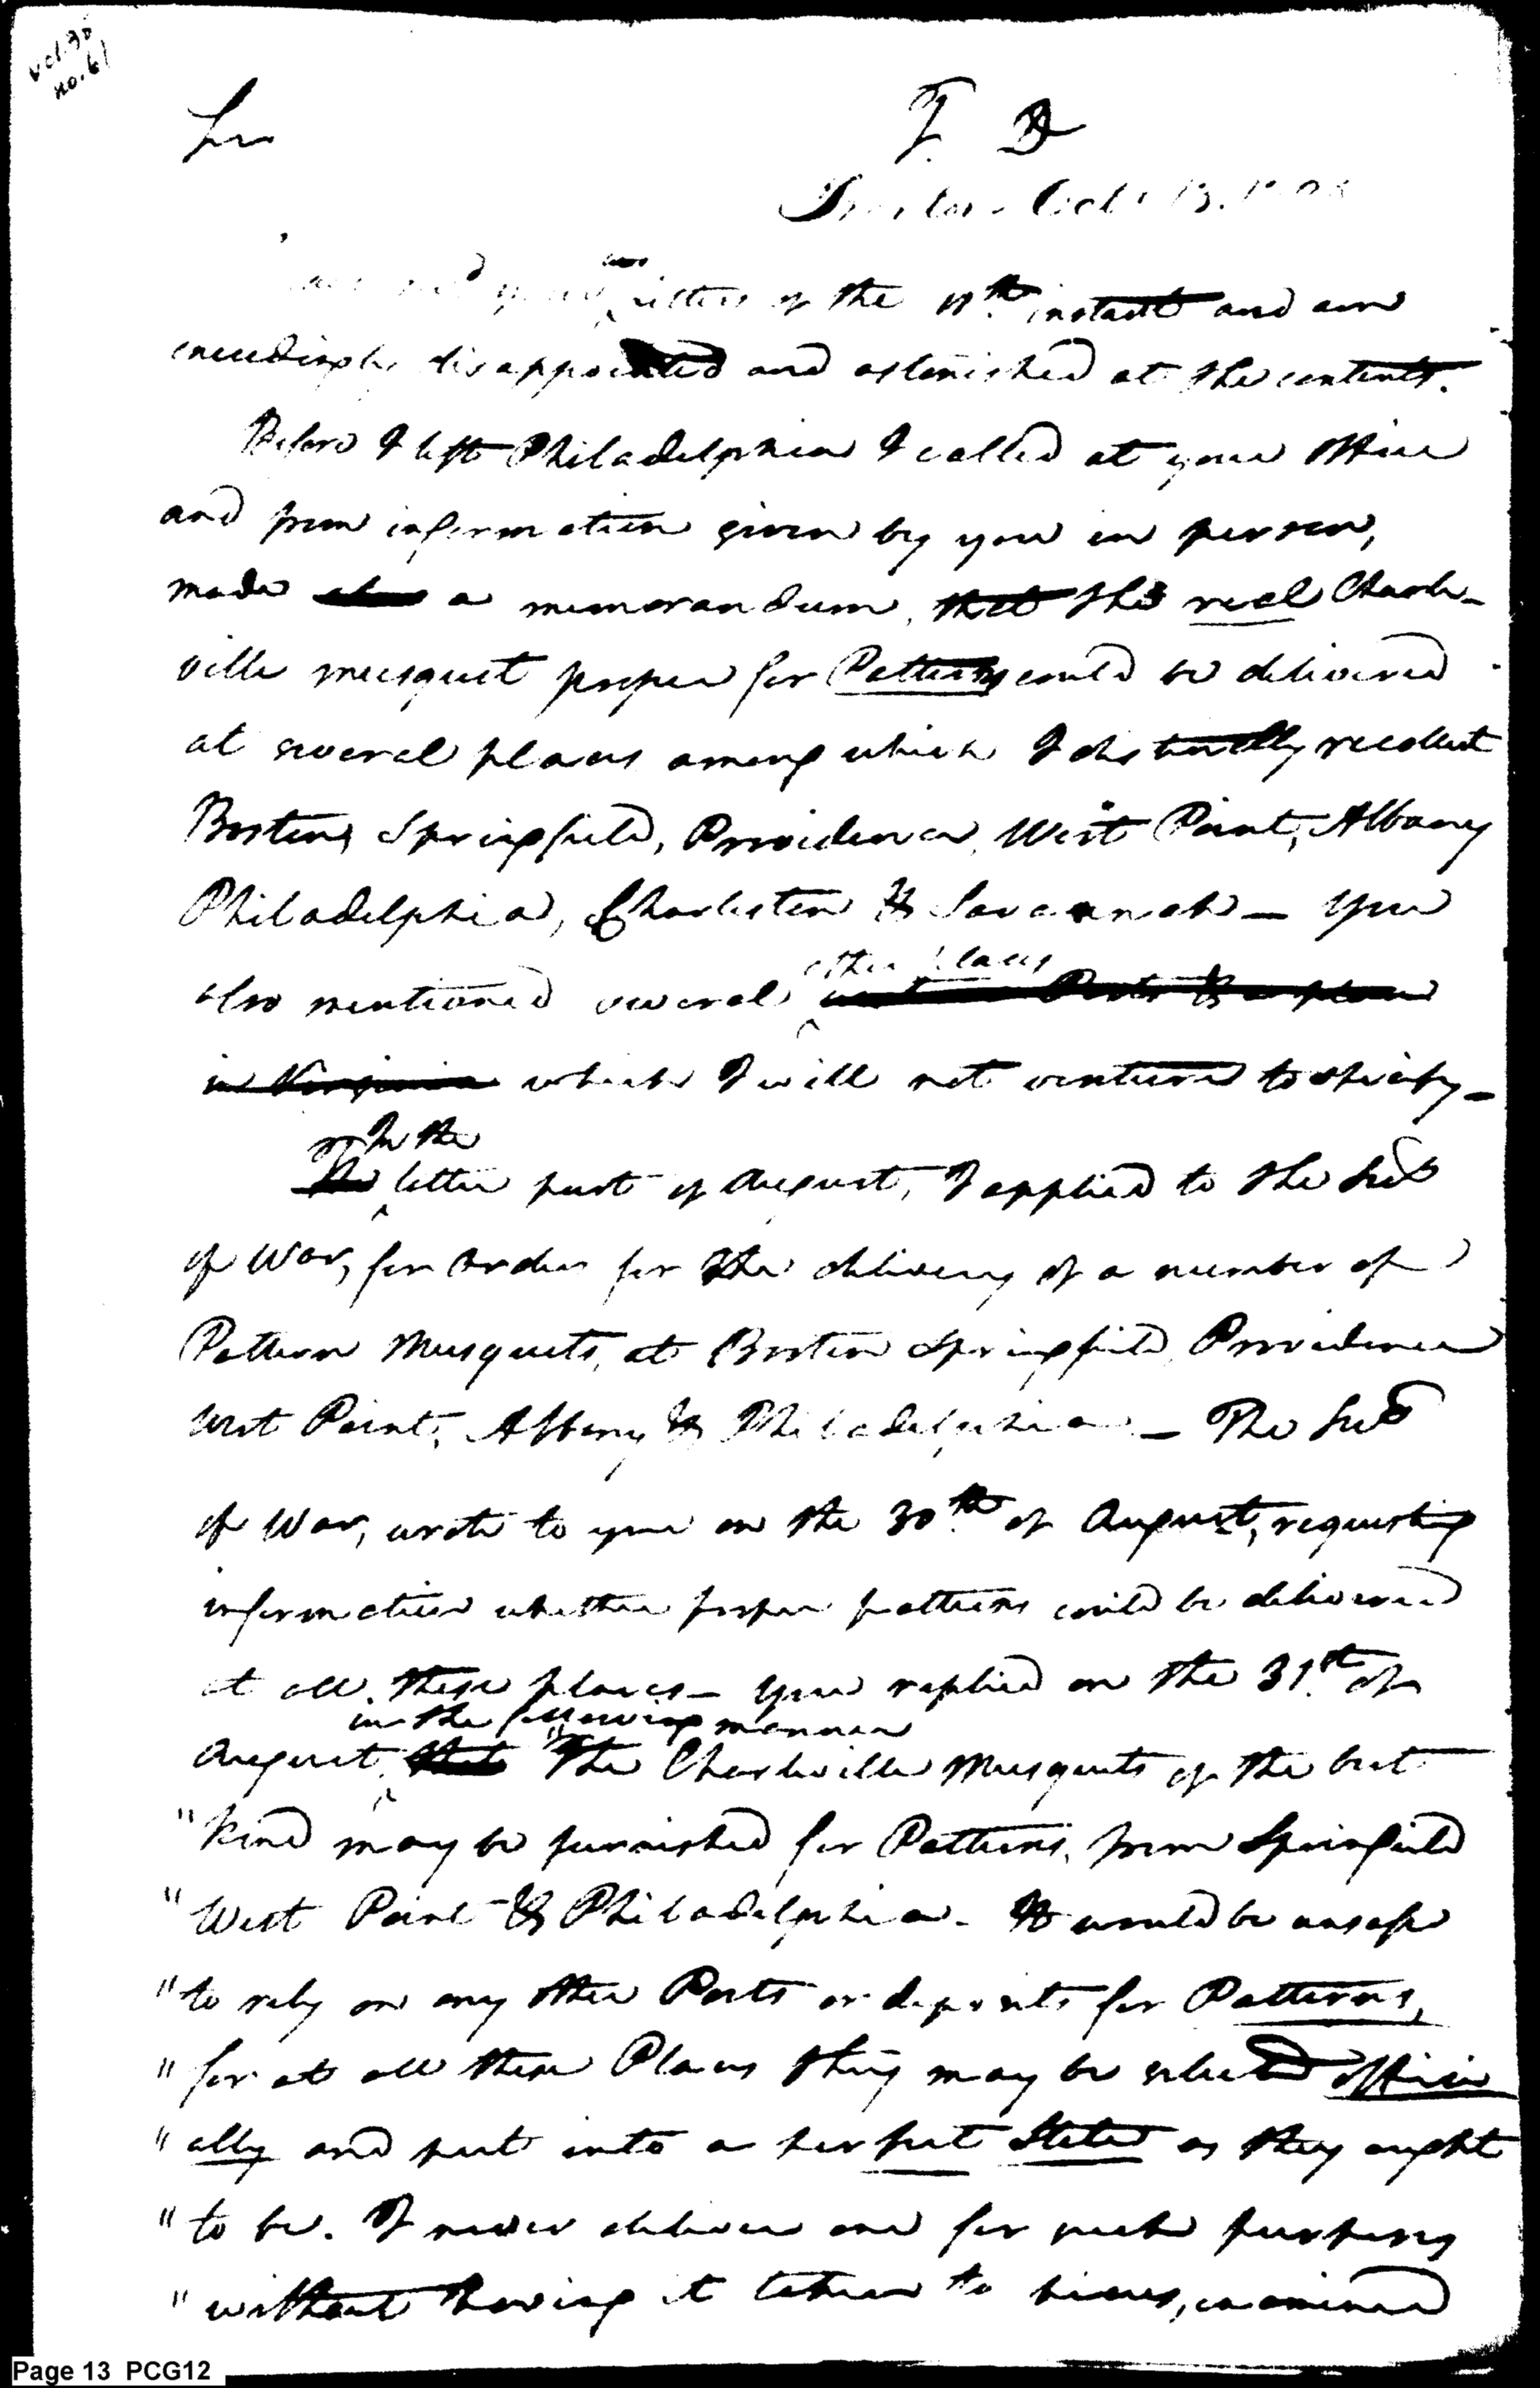 vol. 30
no. 61
Sir
T. D
Trenton Octr 13. 1798
letters of the 11th. instant and am
exceedingly disappointed and astonished at the contents.
Before I left Philadelphia I called at your Office
and from information given by you in person,
made a memorandum, that the real Charle-
ville musquet proper for Patterns could be delivered
at several places among which I distinctly recollect
Boston, Springfield, Providence, West Point, Albany
Philadelphia, Charleston & Savannah — You
other places
also mentioned several Posts & a place
in Virginia which I will not venture to specify —
In the
The latter part of August, I applied to the Secy
of War, for Orders for the delivery of a number of
Pattern Musquets, at Boston Springfield, Providence
West Point, Albany & Philadelphia — The Secy
of War, wrote to you on the 30th. of August, requesting
information whether proper patterns could be delivered
at all these places — You replied on the 31st. of
in the following manner
August, that "The Charleville Musquets of the best
" kind may be furnished for Patterns, from Springfield
" West Point & Philadelphia. It would be unsafe
" to rely on any other Posts or deposits for Patterns,
" for at all these Places they may be selected offici
" ally and put into a perfect State as they ought
" to be. I never deliver one for such purposes
" without having it taken to pieces, examined
Page 13 PCG12